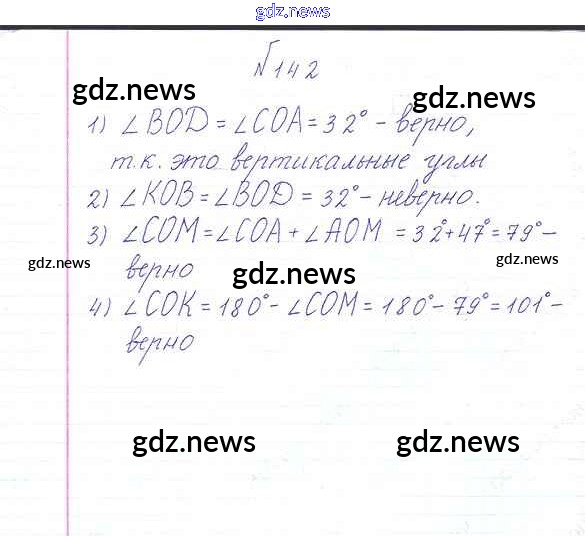 gdz.news
№142
gdz.news gdz.news
1) ∠BOD = ∠COA = 32° - верно,
т.к. это вертикальные углы
2) ∠KOB = ∠BOD = 32° - неверно.
3) ∠COM = ∠COA + ∠AOM = 32°+47°=79° -
gdz.news верно gdz.news gdz.news
4) ∠COK = 180° - ∠COM = 180° - 79° = 101° -
верно
gdz.news gdz.news